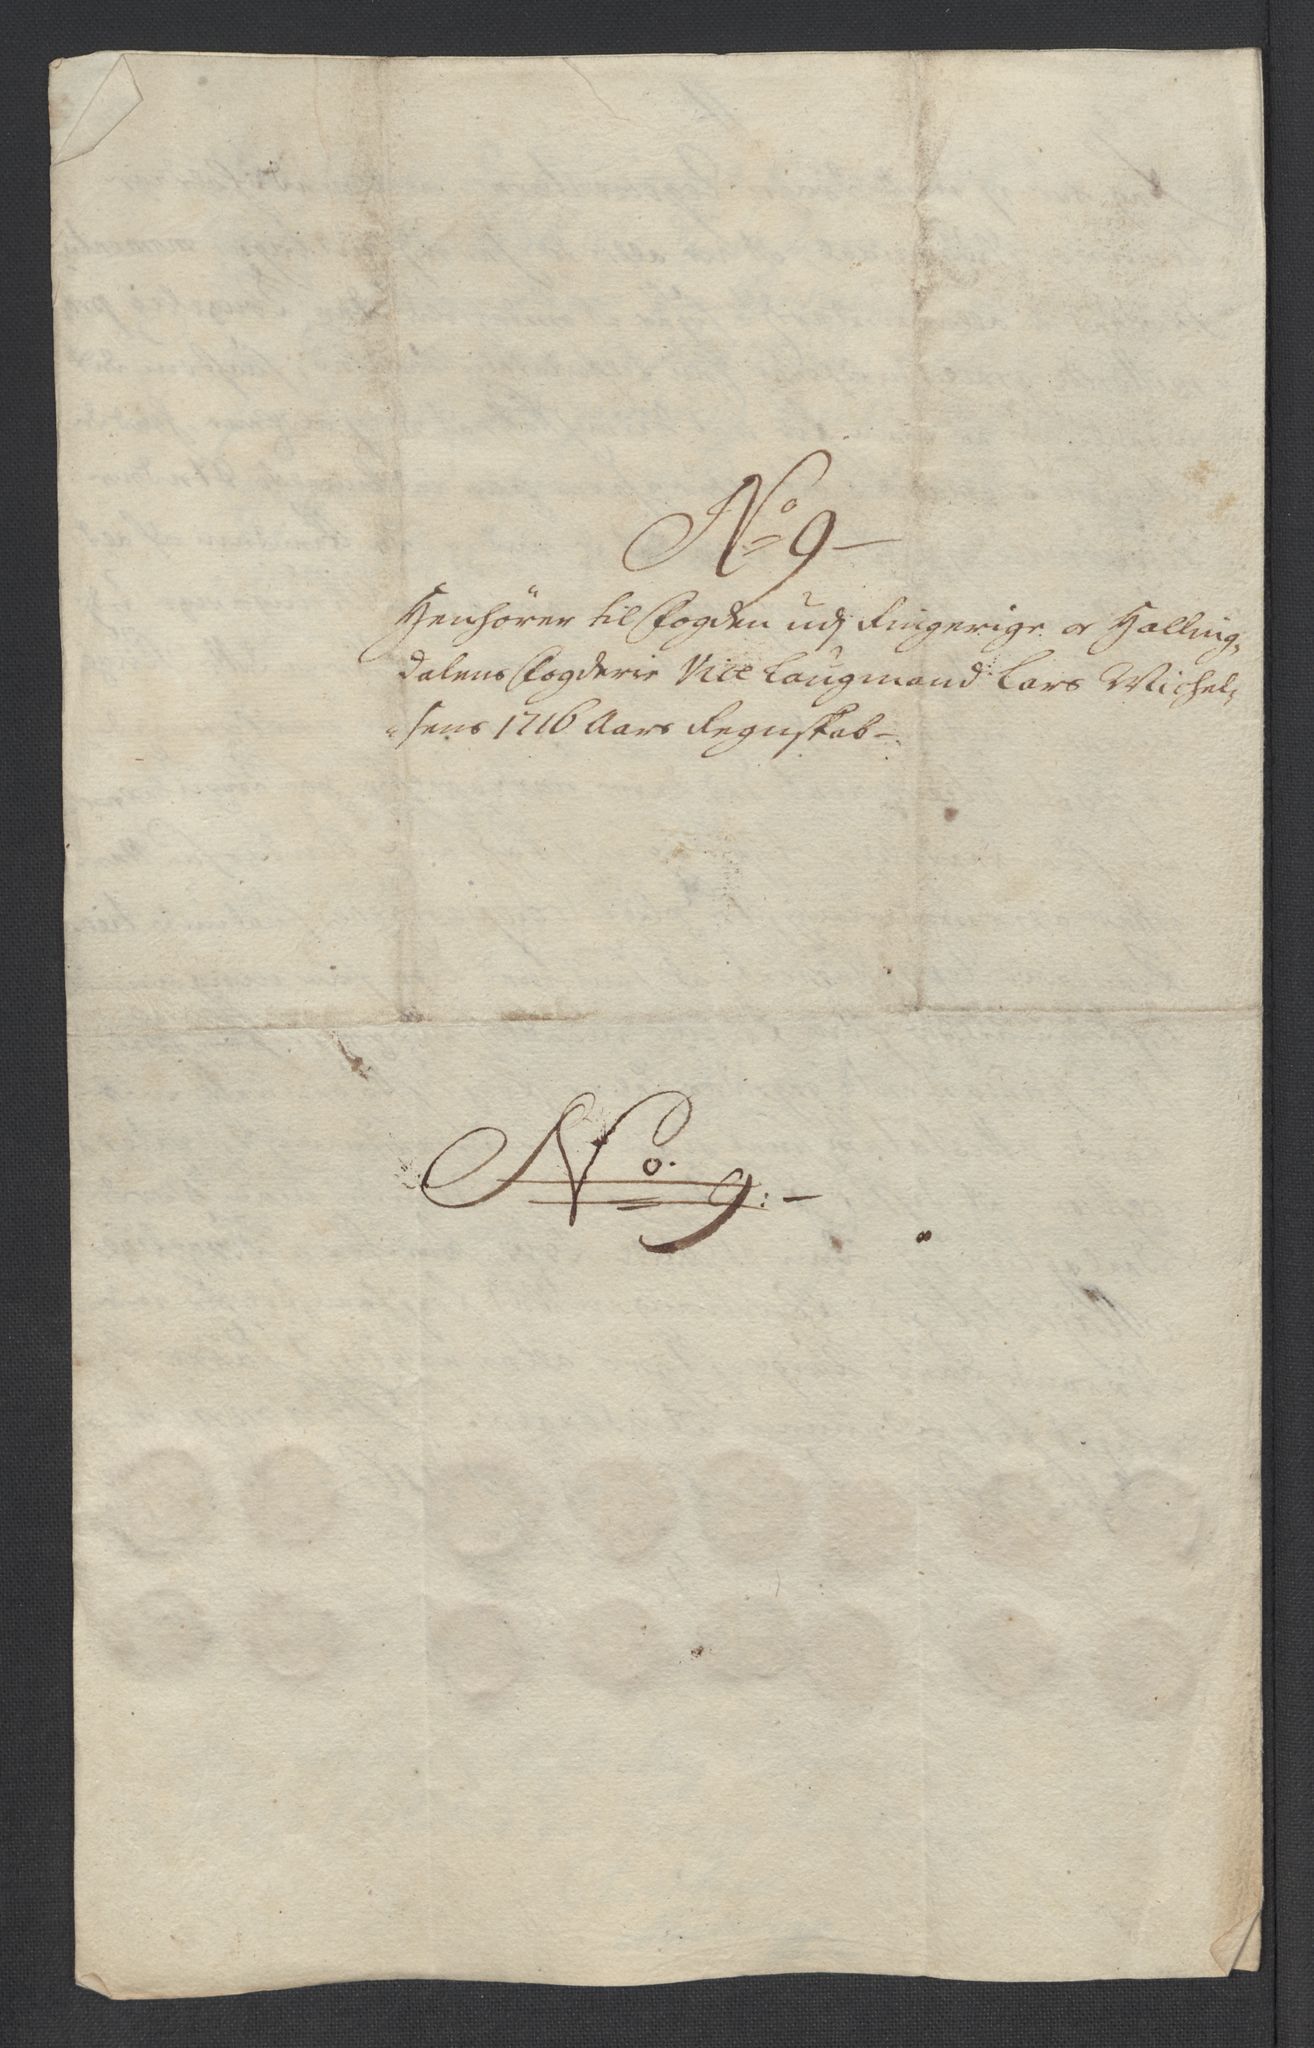 No 9
Henhörer til Fogden udj Ringerige oc Halling„
dalens Fogderie Vice Laugmand Lars Michel„
„sens 1716 Aars Regnskab
No. 9: